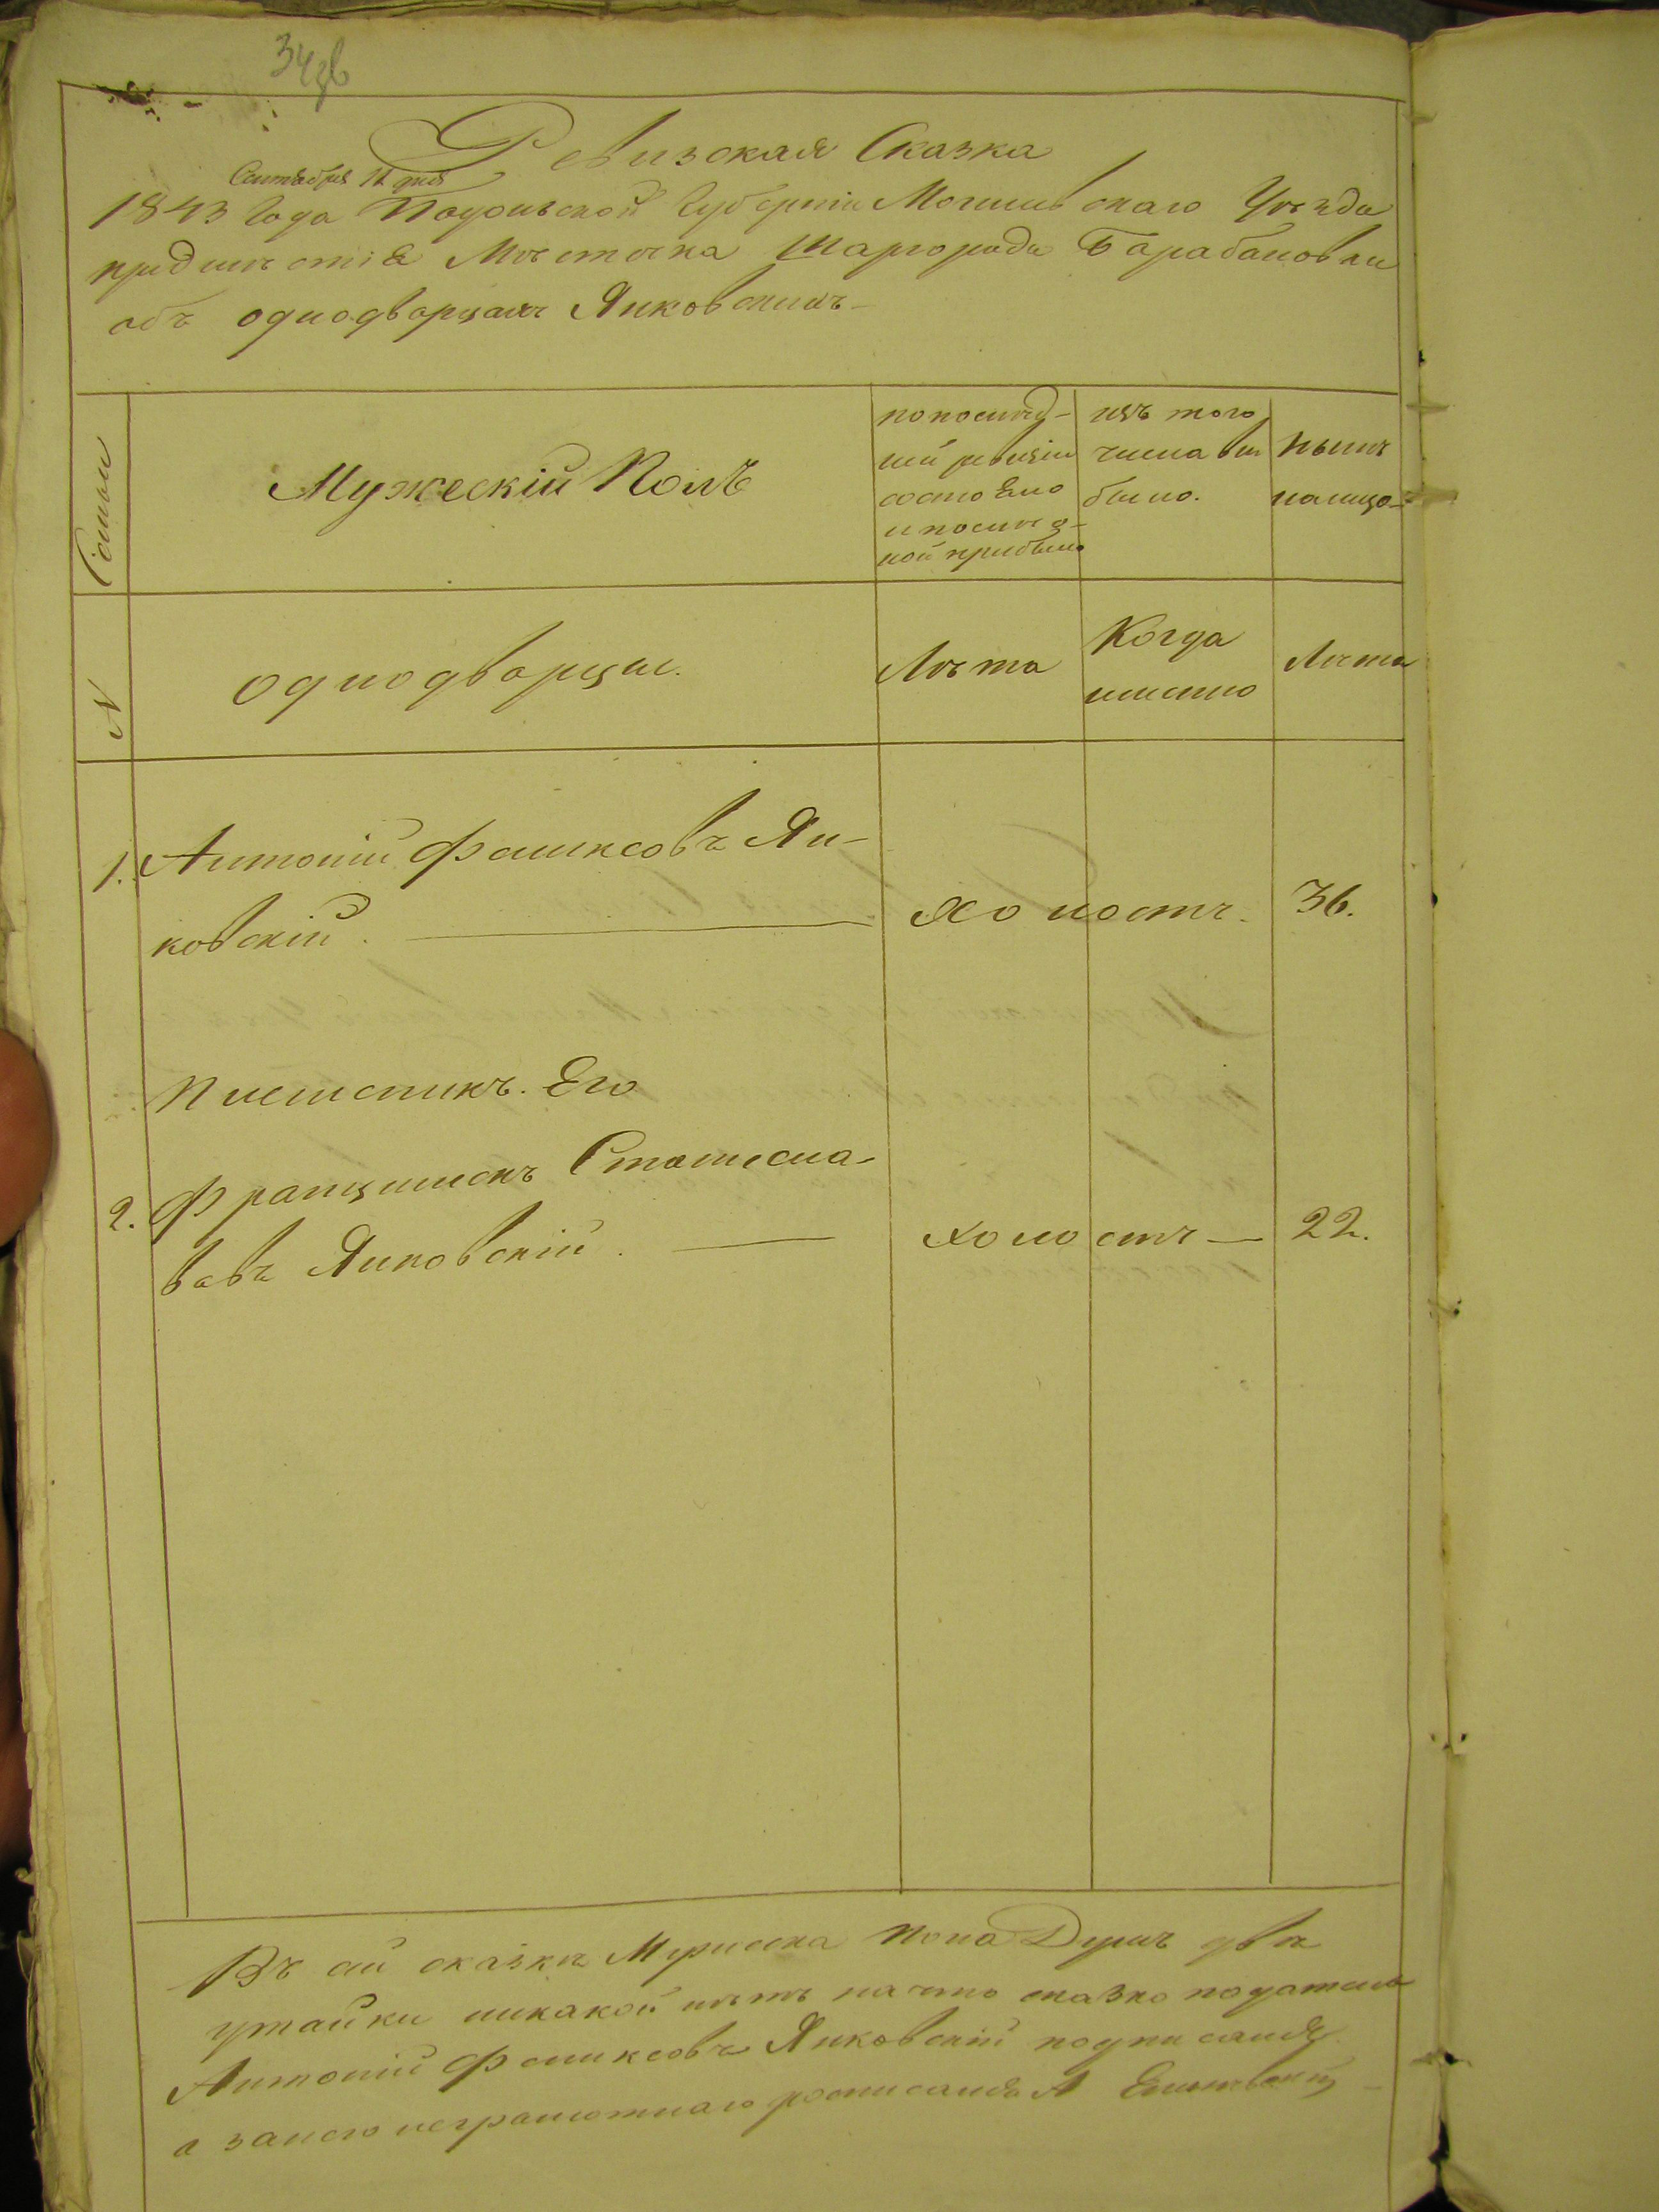 34зв
Ревизская Сказка
Сентября 11 дня
1843 Года Подольской Губернiи Могилевскаго Уѣзда
предмѣстiя Мѣстечка Шаргорода Барабановки
объ однодворцахъ Янковскихъ
Семьи
Мужескiй Полъ
по послед-
ней ревизiи
состояло
и после о-
ной прибыло
изъ того
числа вы
было.
Нынѣ
налицо
N
однодворцы.
Лѣта
Когда
имѣнно
Лѣта
1. Антонiй Феликсовъ Ян-
ковскiй. холостъ. 36.
Племеникъ. Его
2. Францишекъ Станисла-
вовъ Янковскiй. холостъ 22.
Въ сей сказкѣ Мужеска Пола Душъ двѣ
утайки никакой нѣтъ на что сказко податель
Антонiй Феликсовъ Янковскiй подписался
а за него неграмотнаго росписался А